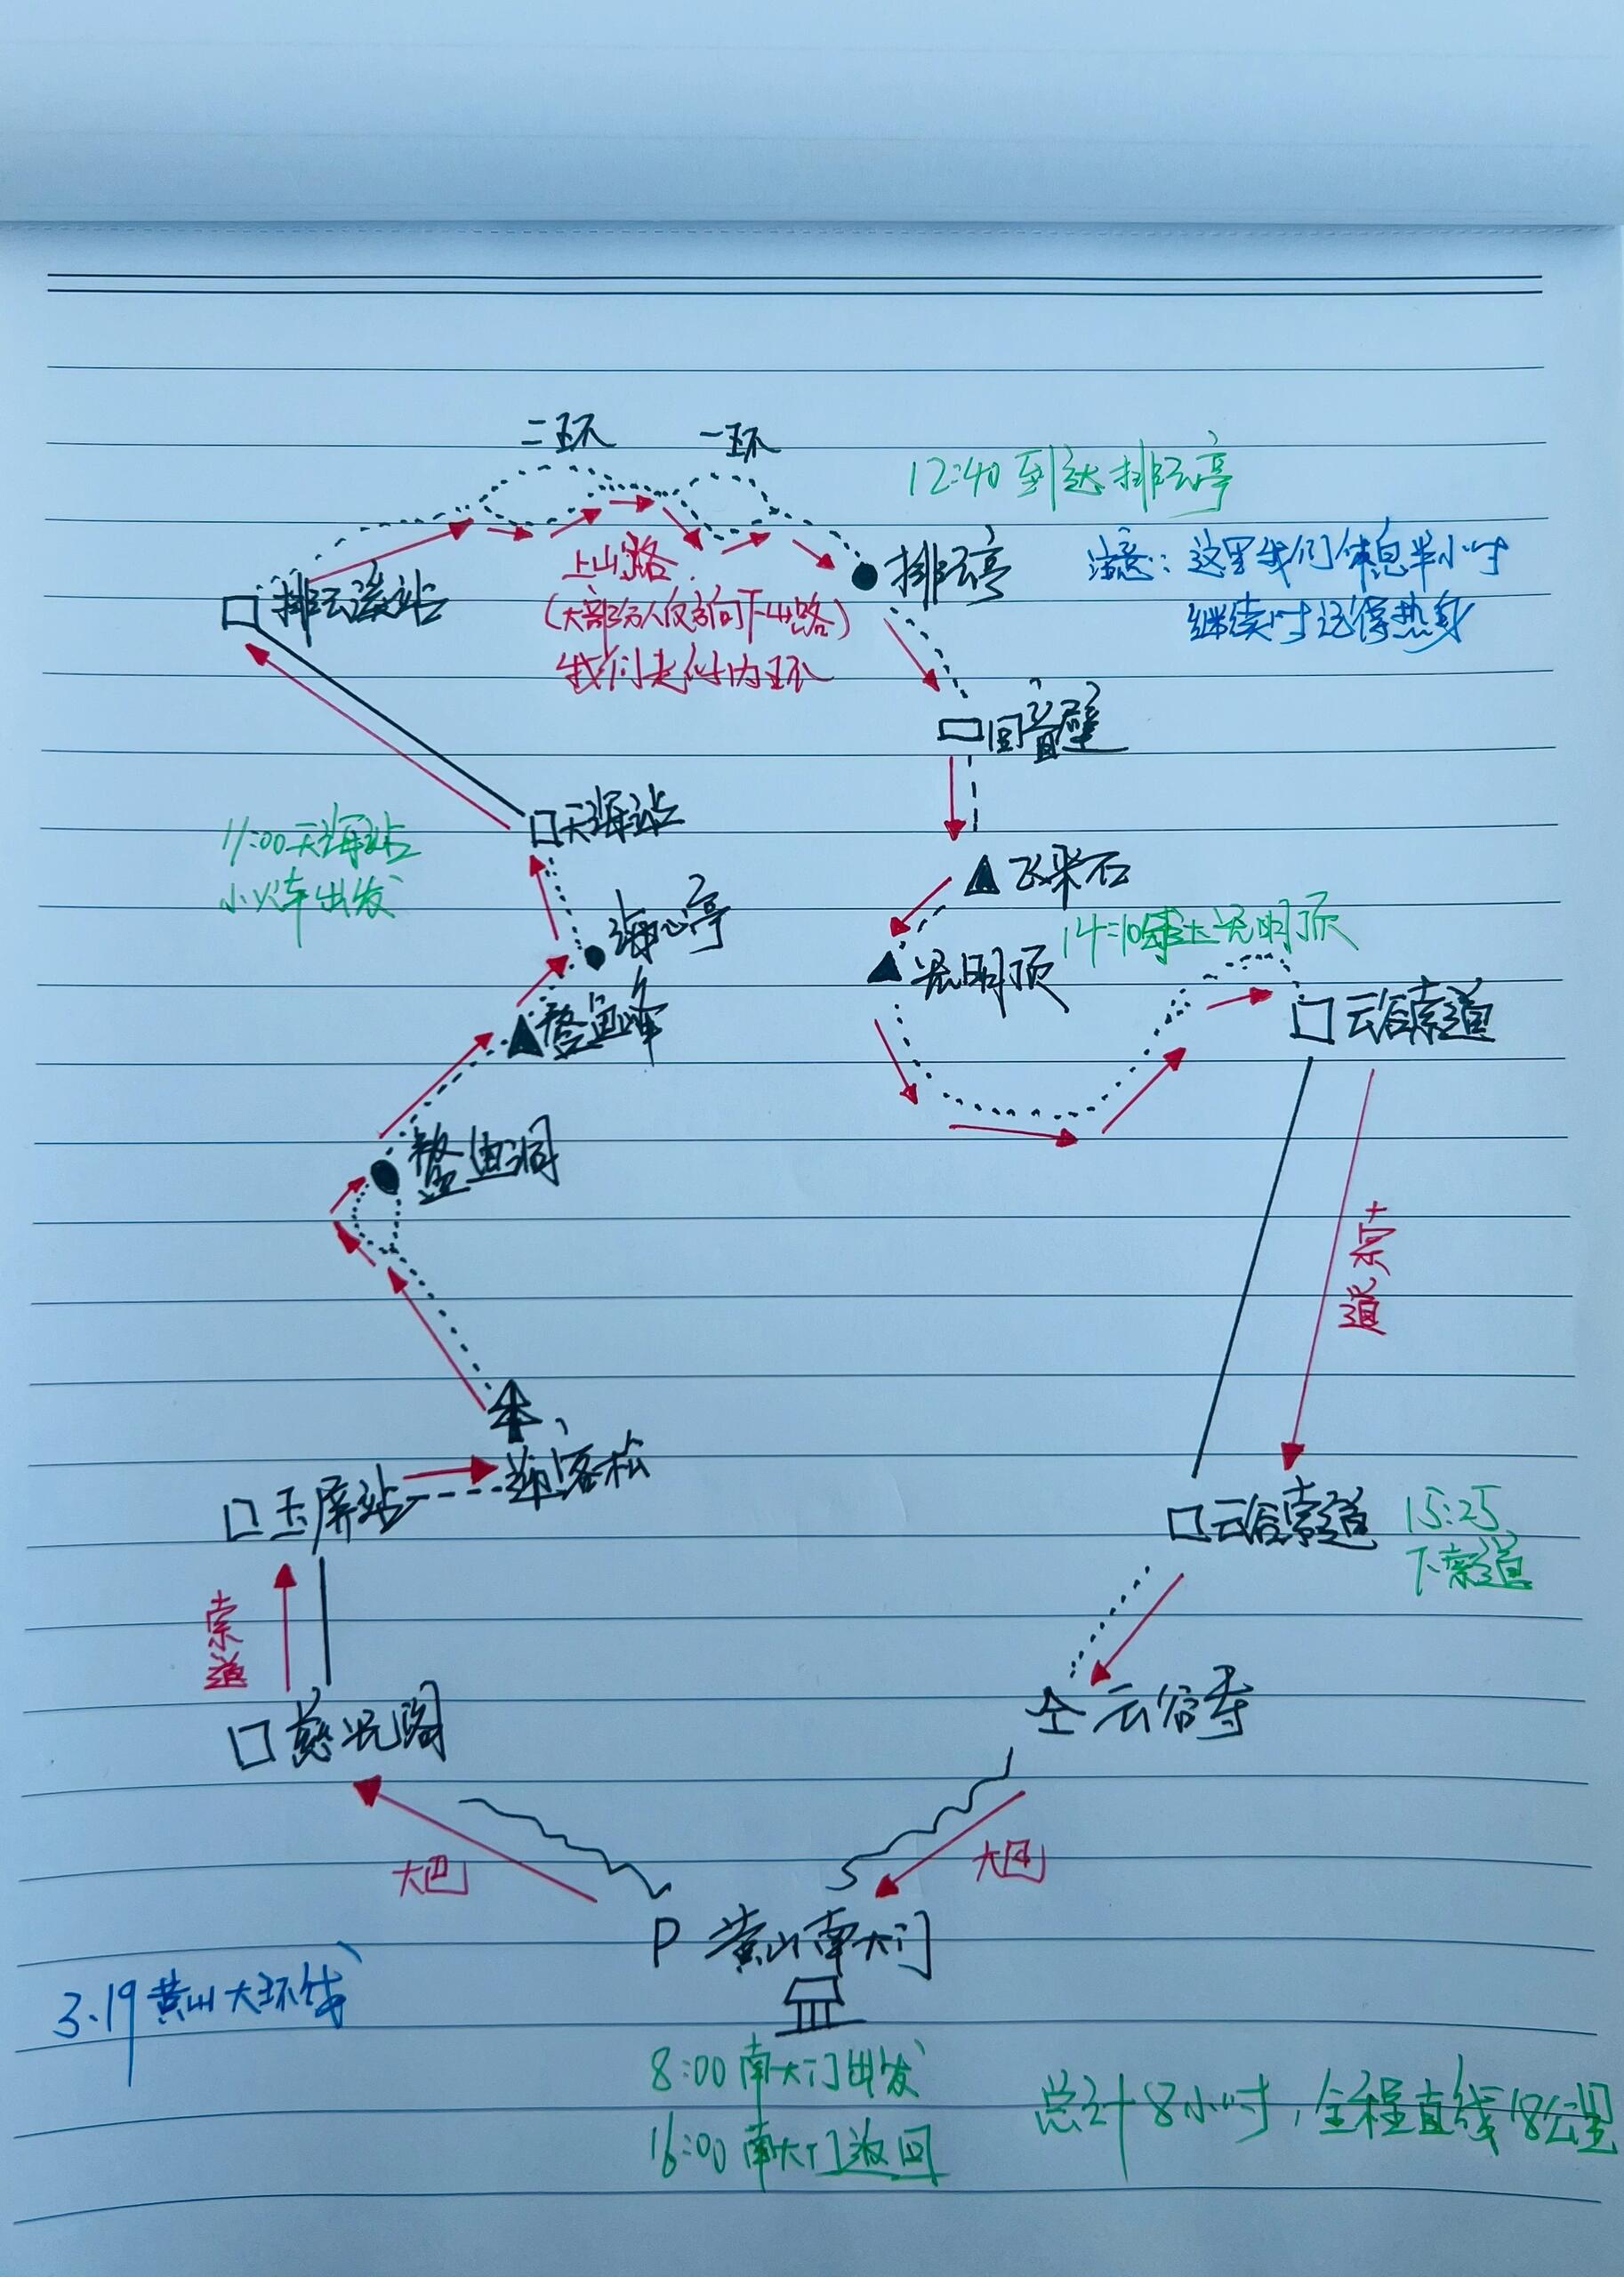 二环 一环
12:40 到达排云亭
排云亭
注意：这里我们休息半小时
继续时记得热身
排云溪站
上山路
(大部分人反方向下山路)
我们走似内环
回音壁
天海站
11:00天海站
小火车出发
飞来石
海心亭
14:10登上光明顶
光明顶
云谷索道
鳌鱼峰
鳌鱼洞
索道
迎客松
玉屏站
云谷索道
15:25
下索道
索道
慈光阁
云谷寺
大巴
大巴
P 黄山南大门
3.19黄山大环线
8:00南大门出发
16:00南大门返回
总计8小时，全程直线18公里